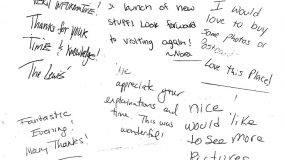 Thanks for your
Time & knowledge!
The Lewis
a bunch of new
stuff! Look forward
to visiting again!
~Nora
I would
love to buy
some photos or
Love this Place!
We
appreciate your
explanations and
time. This was
wonderful!
Fantastic
Evening!
Many Thanks!
nice
would like
to see more
Pictures